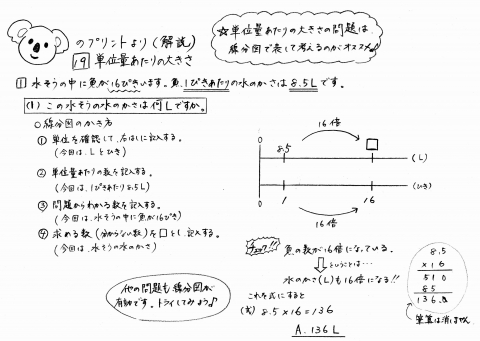 のプリントより(解説)
19 単位量あたりの大きさ
☆単位量あたりの大きさの問題は、
線分図で表して考えるのがオススメ♪
1 水そうの中に魚が16ぴきいます。魚1ぴきあたりの水のかさは8.5Lです。
(1) この水そうの水のかさは何Lですか。
○線分図のかき方
① 単位を確認して、右はしに記入する。
(今回は、Lとひき)
② 単位量あたりの数を記入する。
(今回は、1ぴきあたり8.5L)
③ 問題からわかる数を記入する。
(今回は、水そうの中に魚が16ぴき)
④ 求める数(分からない数)を□とし、記入する。
(今回は、水そうの水のかさ)
他の問題も線分図が
有効です。トライしてみよう♪
16倍
0 8.5 □
(L)
0 1 16
(ひき)
16倍
チェック!! 魚の数が16倍になっている。
⇓ ということは…
水のかさ(L)も16倍になる!!
これを式にすると
(式) 8.5×16=136
A. 136L
8.5
×16
510
85
136.0
筆算は消しません